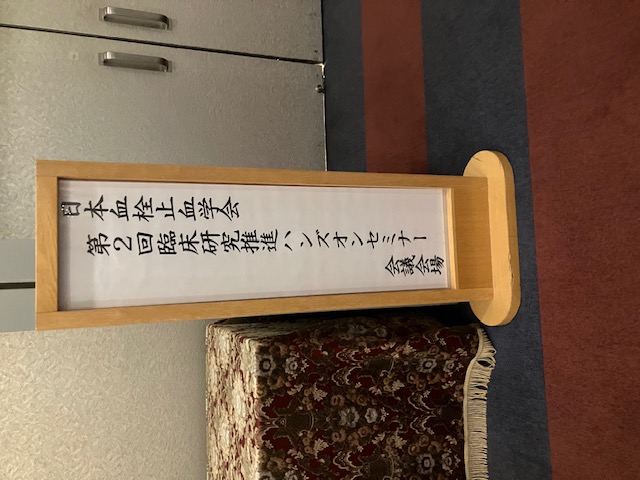 日本血栓止血学会
第2回臨床研究推進ハンズオンセミナー
会議会場